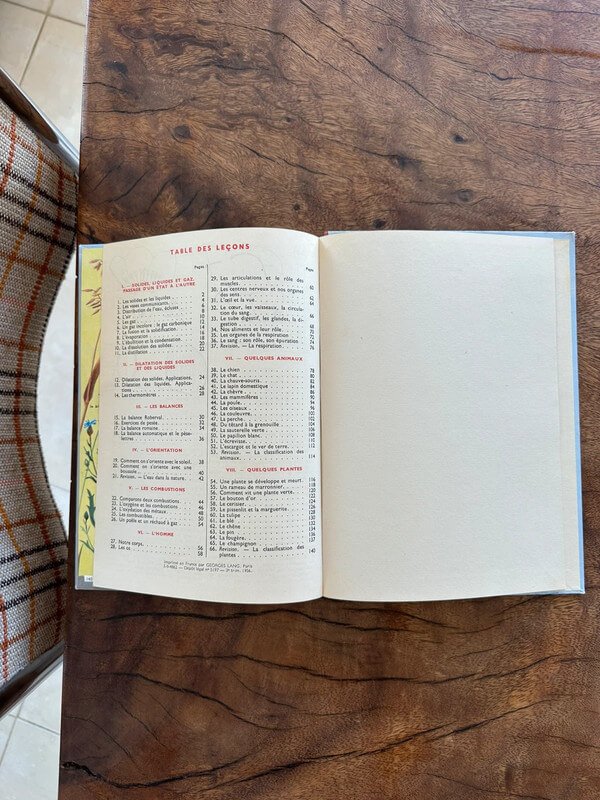 TABLE DES LEÇONS
Pages
I. — SOLIDES, LIQUIDES ET GAZ.
PASSAGE D'UN ÉTAT A L'AUTRE
1. Les solides et les liquides 2
2. Les vases communicants 4
3. Distribution de l'eau, écluses 6
4. L'air 8
5. Les gaz 10
6. Un gaz incolore : le gaz carbonique 12
7. La fusion et la solidification 14
8. L'évaporation 16
9. L'ébullition et la condensation 18
10. La dissolution des solides 20
11. La distillation 22
II. — DILATATION DES SOLIDES
ET DES LIQUIDES
12. Dilatation des solides. Applications. 24
13. Dilatation des liquides. Applica-
tions 26
14. Les thermomètres 28
III. — LES BALANCES
15. La balance Roberval 30
16. Exercices de pesée 32
17. La balance romaine 34
18. La balance automatique et le pèse-
lettres 36
IV. — L'ORIENTATION
19. Comment on s'oriente avec le soleil. 38
20. Comment on s'oriente avec une
boussole 40
21. Revision. — L'eau dans la nature. 42
V. — LES COMBUSTIONS
22. Comparons deux combustions 44
23. L'oxygène et les combustions 46
24. L'oxydation des métaux 48
25. Les combustibles 50
26. Un poêle et un réchaud à gaz 54
VI. — L'HOMME
27. Notre corps 56
28. Les os 58
Imprimé en France par GEORGES LANG, Paris
Pages
29. Les articulations et le rôle des
muscles 60
30. Les centres nerveux et nos organes
des sens 62
31. L'œil et la vue 64
32. Le cœur, les vaisseaux, la circula-
tion du sang 66
33. Le tube digestif, les glandes, la di-
gestion 68
34. Nos aliments et leur rôle 71
35. Les organes de la respiration 72
36. Le sang : son rôle, son épuration 74
37. Revision. — La respiration 76
VII. — QUELQUES ANIMAUX
38. Le chien 78
39. Le chat 80
40. La chauve-souris 82
41. Le lapin domestique 84
42. La chèvre 86
43. Les mammifères 90
44. La poule 94
45. Les oiseaux 96
46. La couleuvre 100
47. La perche 102
48. Du têtard à la grenouille 104
49. La sauterelle verte 106
50. Le papillon blanc 108
51. L'écrevisse 110
52. L'escargot et le ver de terre 112
53. Revision. — La classification des
animaux 114
VIII. — QUELQUES PLANTES
54. Une plante se développe et meurt. 116
55. Un rameau de marronnier 118
56. Comment vit une plante verte 120
57. Le bouton d'or 122
58. Le cerisier 124
59. Le pissenlit et la marguerite 126
60. La tulipe 128
61. Le blé 130
62. Le chêne 132
63. Le pin 134
64. La fougère 136
65. Le champignon 137
66. Revision. — La classification des
plantes 140